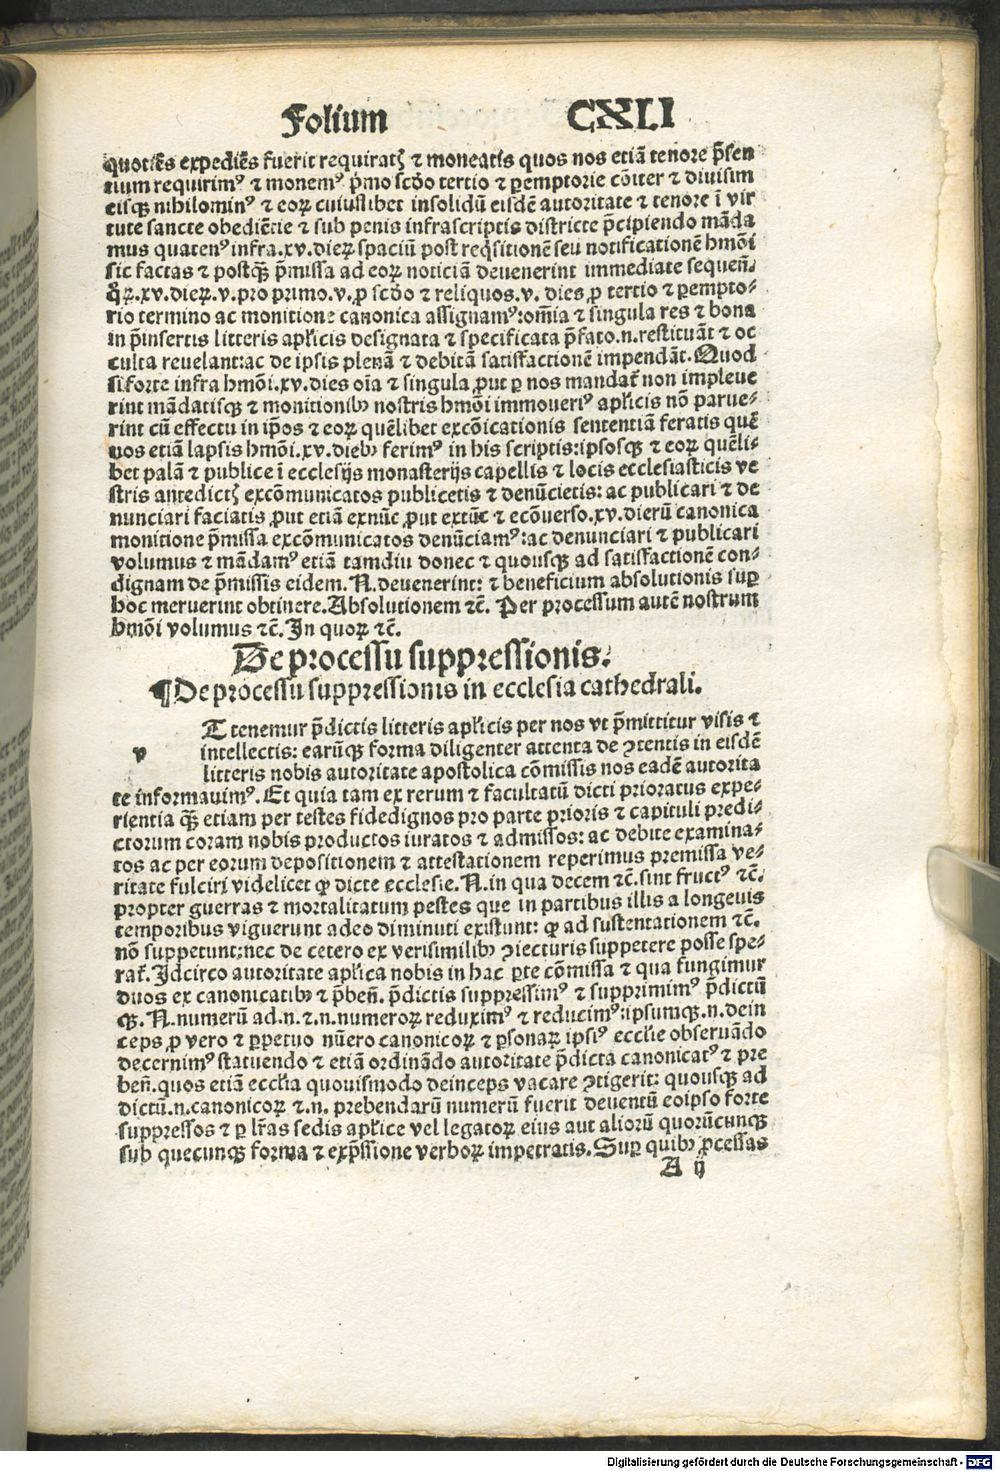 Folium CXLI
quotiēs expediēs fuerit requiratꝭ ⁊ moneatis quos nos etiā tenore p̄sen
tium requirimꝰ ⁊ monemꝰ p̄mo scd̄o tertio ⁊ ꝑemptorie cōiter ⁊ diuisim
eisqꝫ nihilominꝰ ⁊ eoꝝ cuiuslibet insolidū eisdē autoritate ⁊ tenore ī vir
tute sancte obediētie ⁊ sub penis infrascriptis districte p̄cipiendo māda
mus quatenꝰ infra.xv.dieꝝ spaciū post reqͥsitionē seu notificationē hmōi
sic factas ⁊ postqꝫ p̄missa ad eoꝝ noticiā deuenerint immediate sequen̄.
qͦꝝ.xv.dieꝝ.v.pro primo.v.ꝓ scd̄o ⁊ reliquos.v. dies ꝓ tertio ⁊ ꝑempto-
rio termino ac monitione canonica assignamꝰ:om̄ia ⁊ singula res ⁊ bona
in p̄insertis litteris aplicis designata ⁊ specificata p̄fato.n.restituāt ⁊ oc
culta reuelant:ac de ipsis plenā ⁊ debitā satisfactionē impendāt. Quod
si forte infra hmōi.xv.dies oīa ⁊ singula ꝓut ꝑ nos mandat̄ non impleue
rint mādatisqꝫ ⁊ monitionibꝫ nostris hmōi immoueriꝰ aplicis nō parue-
rint cū effectu in ip̄os ⁊ eoꝝ quēlibet excōicationis sententiā feratis quē
nos etiā lapsis hmōi.xv.diebꝫ ferimꝰ in his scriptis:ipsosqꝫ ⁊ eoꝝ quēli-
bet palā ⁊ publice ī ecclesijs monasterijs capellis ⁊ locis ecclesiasticis ve
stris antedictꝭ excōmunicatos publicetis ⁊ denūcietis: ac publicari ⁊ de
nunciari faciatis ꝓut etiā exnūc ꝓut extūc ⁊ ecōuerso.xv.dierū canonica
monitione p̄missa excōmunicatos denūciamꝰ:ac denunciari ⁊ publicari
volumus ⁊ mādamꝰ etiā tamdiu donec ⁊ quousqꝫ ad satisfactionē con-
dignam de p̄missis eidem. N. deuenerint: ⁊ beneficium absolutionis suꝑ
hoc meruerint obtinere. Absolutionem ⁊c̄. Per processum autē nostrum
hmōi volumus ⁊c̄. In quoꝝ ⁊c̄.
De processu suppressionis.
¶ De processu suppressionis in ecclesia cathedrali.
v
T tenemur p̄dictis litteris aplicis per nos vt p̄mittitur visis ⁊
intellectis: earūqꝫ forma diligenter attenta de ꝯtentis in eisdē
litteris nobis autoritate apostolica cōmissis nos eadē autorita
te informauimꝰ. Et quia tam ex rerum ⁊ facultatū dicti prioratus expe-
rientia qꝫ etiam per testes fidedignos pro parte prioris ⁊ capituli predi-
ctorum coram nobis productos iuratos ⁊ admissos: ac debite examina-
tos ac per eorum depositionem ⁊ attestationem reperimus premissa ve-
ritate fulciri videlicet ꝙ dicte ecclesie. N. in qua decem ⁊c̄. sint fructꝰ ⁊c̄.
propter guerras ⁊ mortalitatum pestes que in partibus illis a longeuis
temporibus viguerunt adeo diminuti existunt: ꝙ ad sustentationem ⁊c̄.
nō suppetunt:nec de cetero ex verisimilibꝫ ꝯiecturis suppetere posse spe-
rat̄. Idcirco autoritate aplica nobis in hac ꝑte cōmissa ⁊ qua fungimur
duos ex canonicatibꝫ ⁊ p̄ben̄. p̄dictis suppressimꝰ ⁊ supprimimꝰ p̄dictū
qꝫ. N. numerū ad.n.⁊.n.numeroꝝ reduximꝰ ⁊ reducimꝰ:ipsumqꝫ.n.dein
ceps ꝓ vero ⁊ ꝑpetuo nūero canonicoꝝ ⁊ ꝑsonaꝝ ipsiꝰ ecclie obseruādo
decernimꝰ statuendo ⁊ etiā ordinādo autoritate p̄dicta canonicatꝰ ⁊ pre
ben̄.quos etiā ecclia quouismodo deinceps vacare ꝯtigerit: quousqꝫ ad
dictū.n.canonicoꝝ ⁊.n. prebendarū numerū fuerit deuentū eoipso forte
suppressos ⁊ ꝑ lr̄as sedis aplice vel legatoꝝ eius aut aliorū quorūcunqꝫ
sub quecunqꝫ forma ⁊ exp̄ssione verboꝝ impetratis. Suꝑ quibꝫ ꝓcessas
A ij
Digitalisierung gefördert durch die Deutsche Forschungsgemeinschaft - DFG